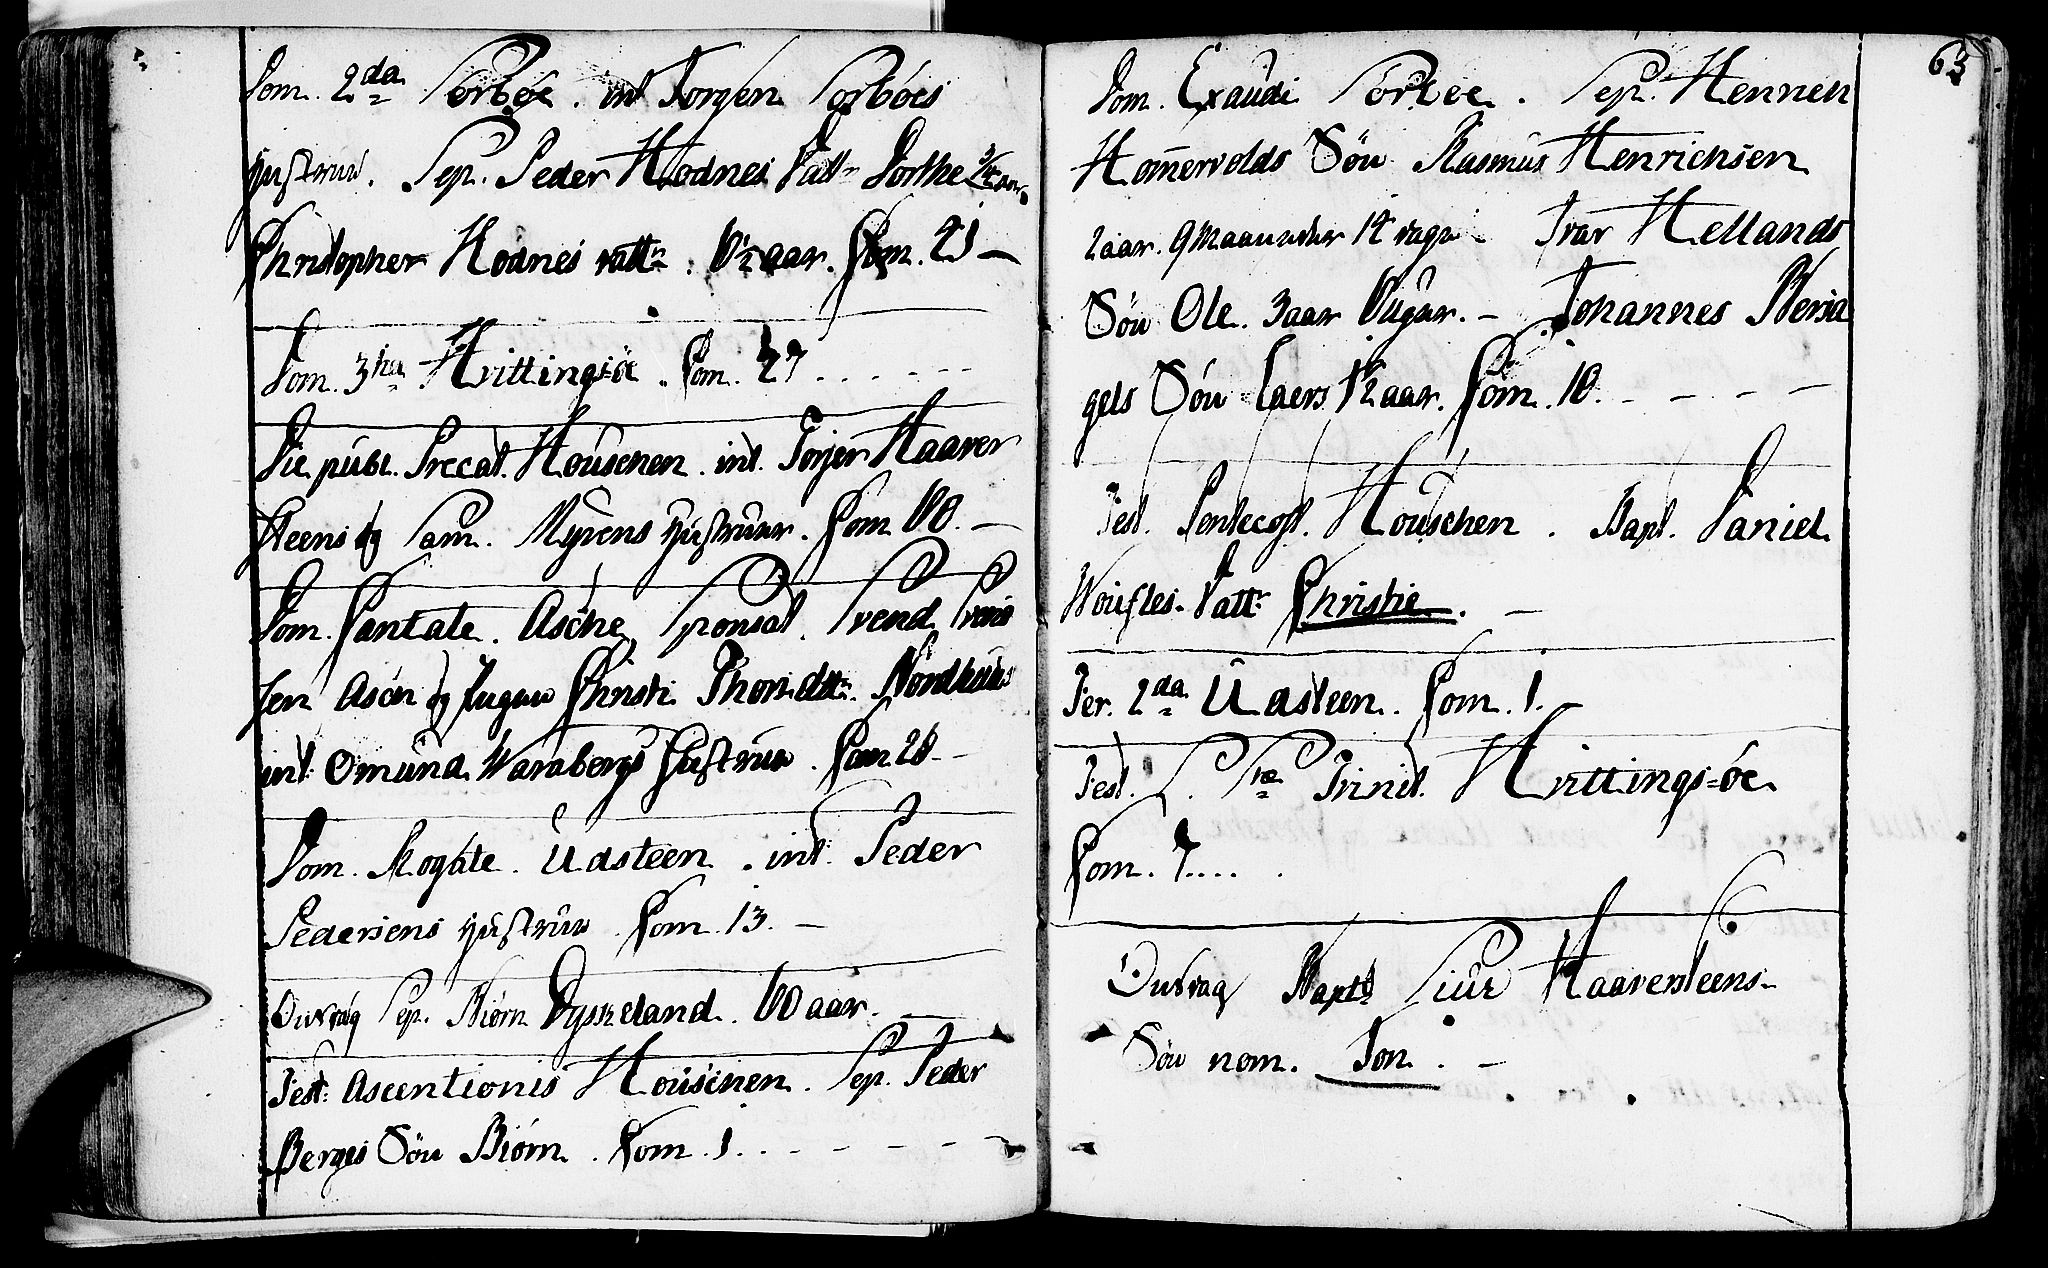 Dom. 2da Sørböe. int Jorgen Sorböes
Hustrue. Sep. Peder Hodnes Datt. Dorthe
Christopher Hodnes Datt. aar. Com. 21 —
Dom. 3tia Hvittings-öe. Com. 27 . . . . . .
Die publ. Precat. Houschen. int. Torjer Haaver
steens og Sam. Myrens Hustruer. Com. —
Dom. Cantate. Asche Sponsal. Svend
sen Asche og Christi Nordhuus
int Omund Waraberg Hustrue. Com 26. —
Dom. Rogate. Udsteen. int. Peder
Pedersens Hustrue Com. 13. —
Onsdag Sep. Biörn Dysseland. aar. —
Fest: Ascentionis Houschen. Sep. Peder
Berges Sön Biörn. Com. 1. . — — — —
63
Dom. Exaudi Sörböe. Sep. Hennen
Homervolds Sön Rasmus Henrichsen
2 aar. 9 Maaneder 14 Dage — Ivar Hellands
Sön Ole. 3 aar Uger. — Johannes Bersa
gels Sön Laers aar. Com. 10. — — — —
Fest. Pentecost. Houschen. Bapt. Daniel
Datt: Christie. —
Fer. 2da Udsteen. Com. 1. —
Fest. S. Stæ Trinit. Hvittings-öe.
Com. 7. . . . .
Onsdag Bapt: Siur Haaversteens-
Sön nom. Jon. —